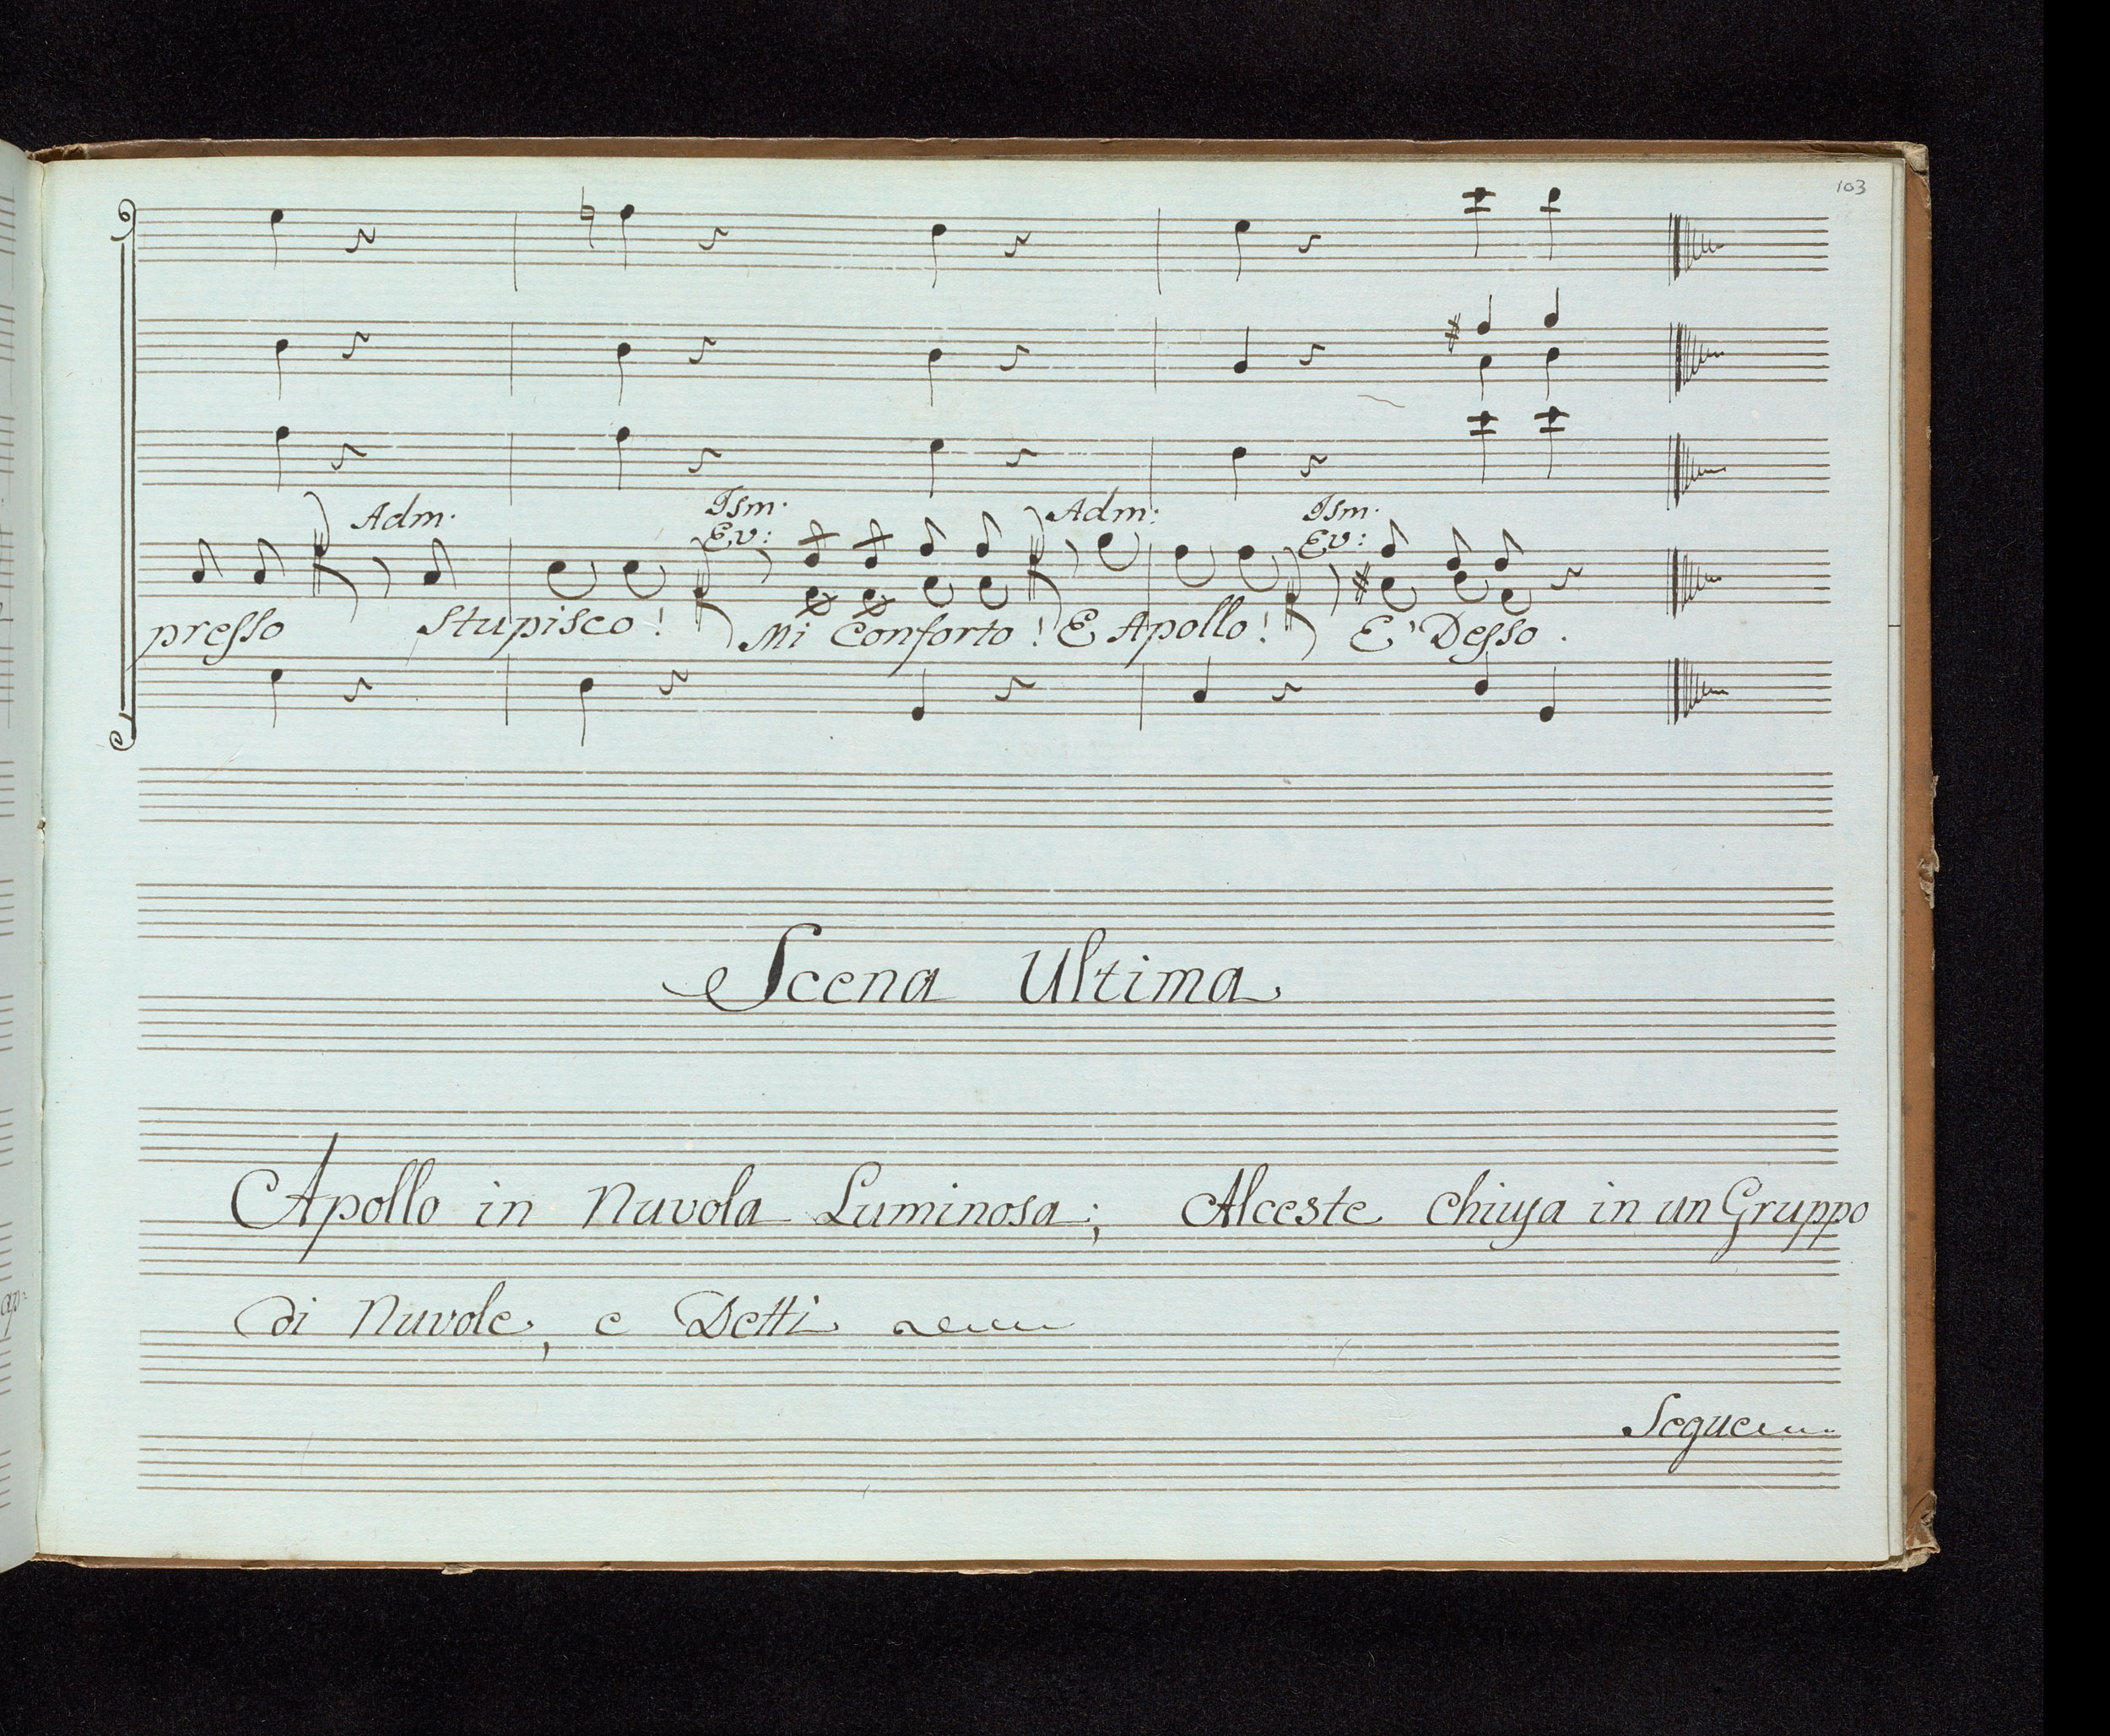 103
Adm. Ism. Adm: Ism.
Ev: Ev:
presso stupisco! Mi Conforto! E Apollo! E' Desso.
Scena Ultima
Apollo in Nuvola Luminosa; Alceste chiusa in un Gruppo
di Nuvole, e Detti
Segue